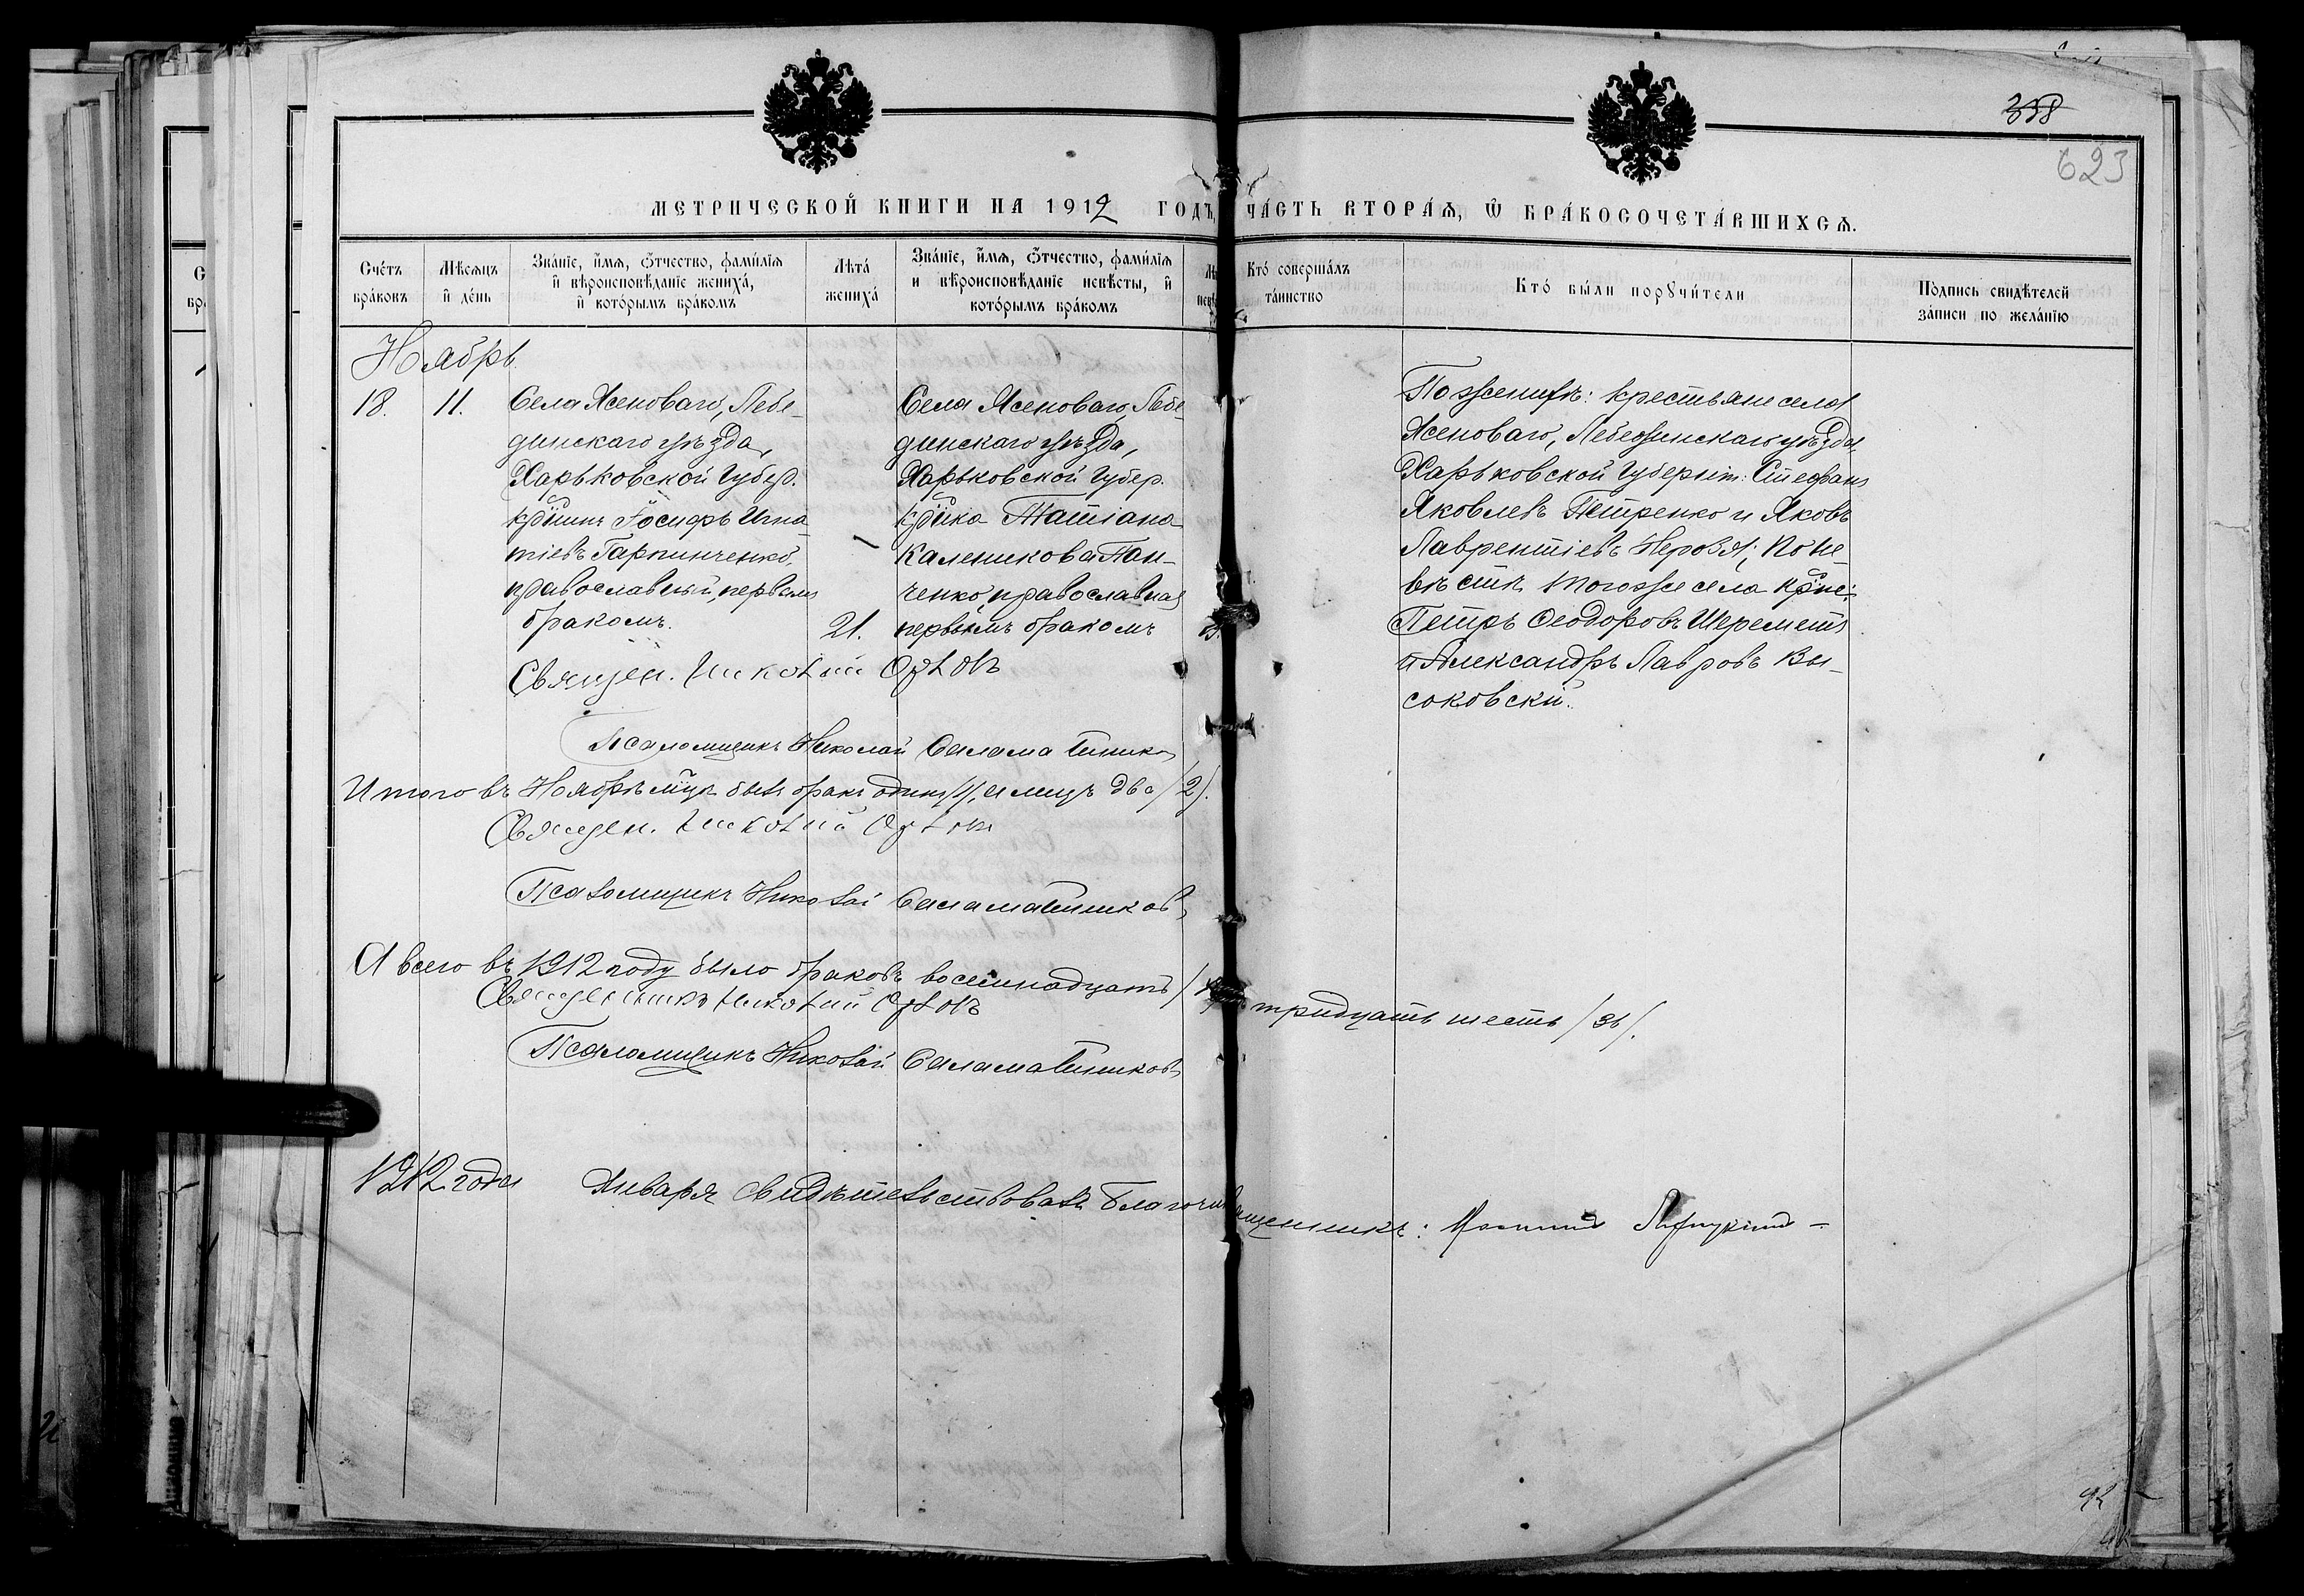 358
623
МЕТРИЧЕСКОЙ КНИГИ НА 1912 ГОДЪ, ЧАСТЬ ВТОРАЯ, Ѡ БРАКОСОЧЕТАВШИХСЯ.
Счетъ браковъ
Мѣсяцъ и день
Званіе, имя, отчество, фамилія и вѣроисповѣданіе жениха, и которымъ бракомъ
Лѣта жениха
Званіе, имя, отчество, фамилія и вѣроисповѣданіе невѣсты, и которымъ бракомъ
Кто совершалъ таинство
Кто были поручители
Подпись свидѣтелей записи по желанію
Ноябрь
18.
11.
Села Ясеноваго, Лебе-
динскаго уѣзда,
Харьковской Губер.
крⷭ҇нинъ Іосифъ Игна
тіевъ Гарпинченко,
православный, первымъ
бракомъ.
21.
Села Ясеноваго, Лебе-
динскаго уѣзда,
Харьковской Губер.
крⷭ҇нка Татіана
Каленикова Пан-
ченко, православная
первымъ бракомъ
По женихѣ: крестьяне села
Ясеноваго, Лебединскаго уѣзда,
Харьковской Губерніи: Стефанъ
Яковлевъ Петренко и Яковъ
Лаврентіевъ Неровя; по не-
вѣстѣ того же села крⷭ҇не:
Петръ Ѳеодоровъ Шереметъ
и Александръ Лавровъ Вы-
соковскій.
Священ. Николай Орловъ
Псаломщикъ Николай Саламатников
Итого въ Ноябрѣ мцѣ былъ бракъ одинъ /1/, а лицъ два /2/.
Священ. Николай Орловъ
Псаломщикъ Николай Саламатниковъ
А всего въ 1912 году было браковъ восемнадцать / тридцать шесть /36/.
Священникъ Николай Орловъ
Псаломщикъ Николай Саламатниковъ
1912 года Января свидѣтельствовалъ Благочин щенникъ:
92